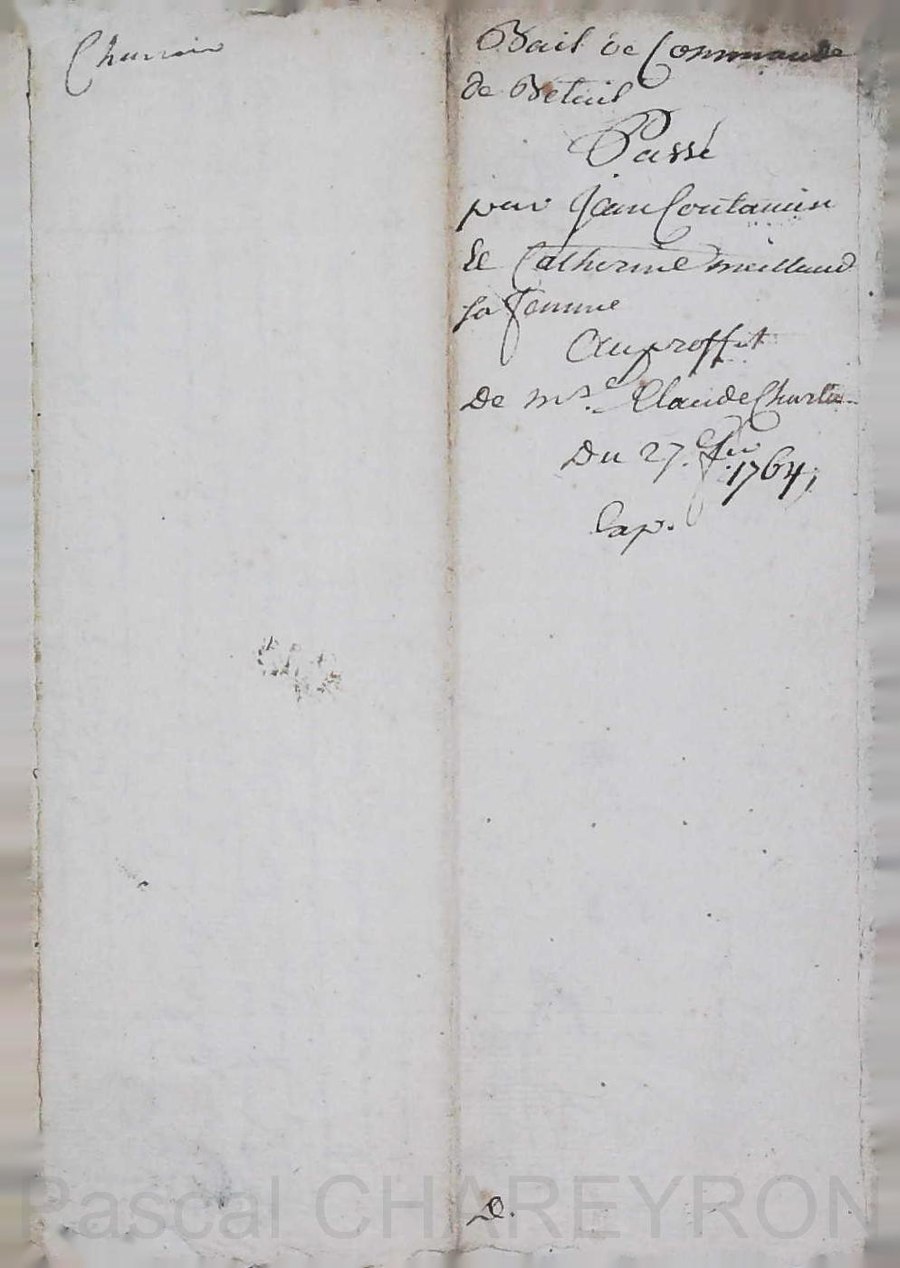 Bail de Commande
de Betail
Passé
par Jean Coutamin
Et Catherine meilland
sa femme
Au proffit
De mre. Claude
Du 27.
1764,
Cap.
Pascal CHAREYRON